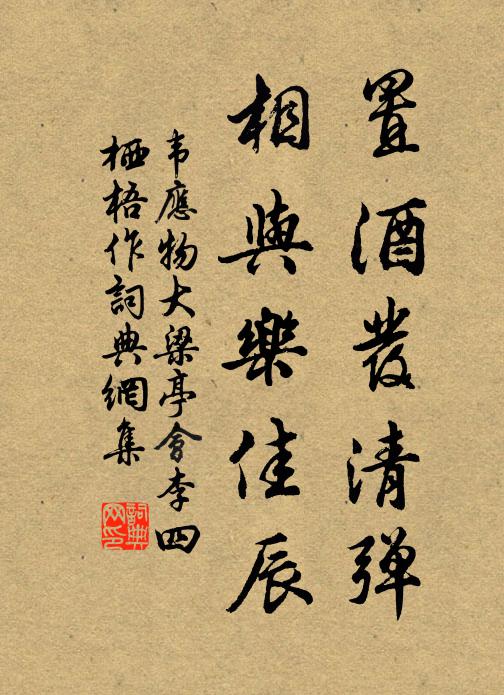 置酒發清彈
相與樂佳辰
韋應物大梁亭會李四
栖梧作詞典網集
詞典網印